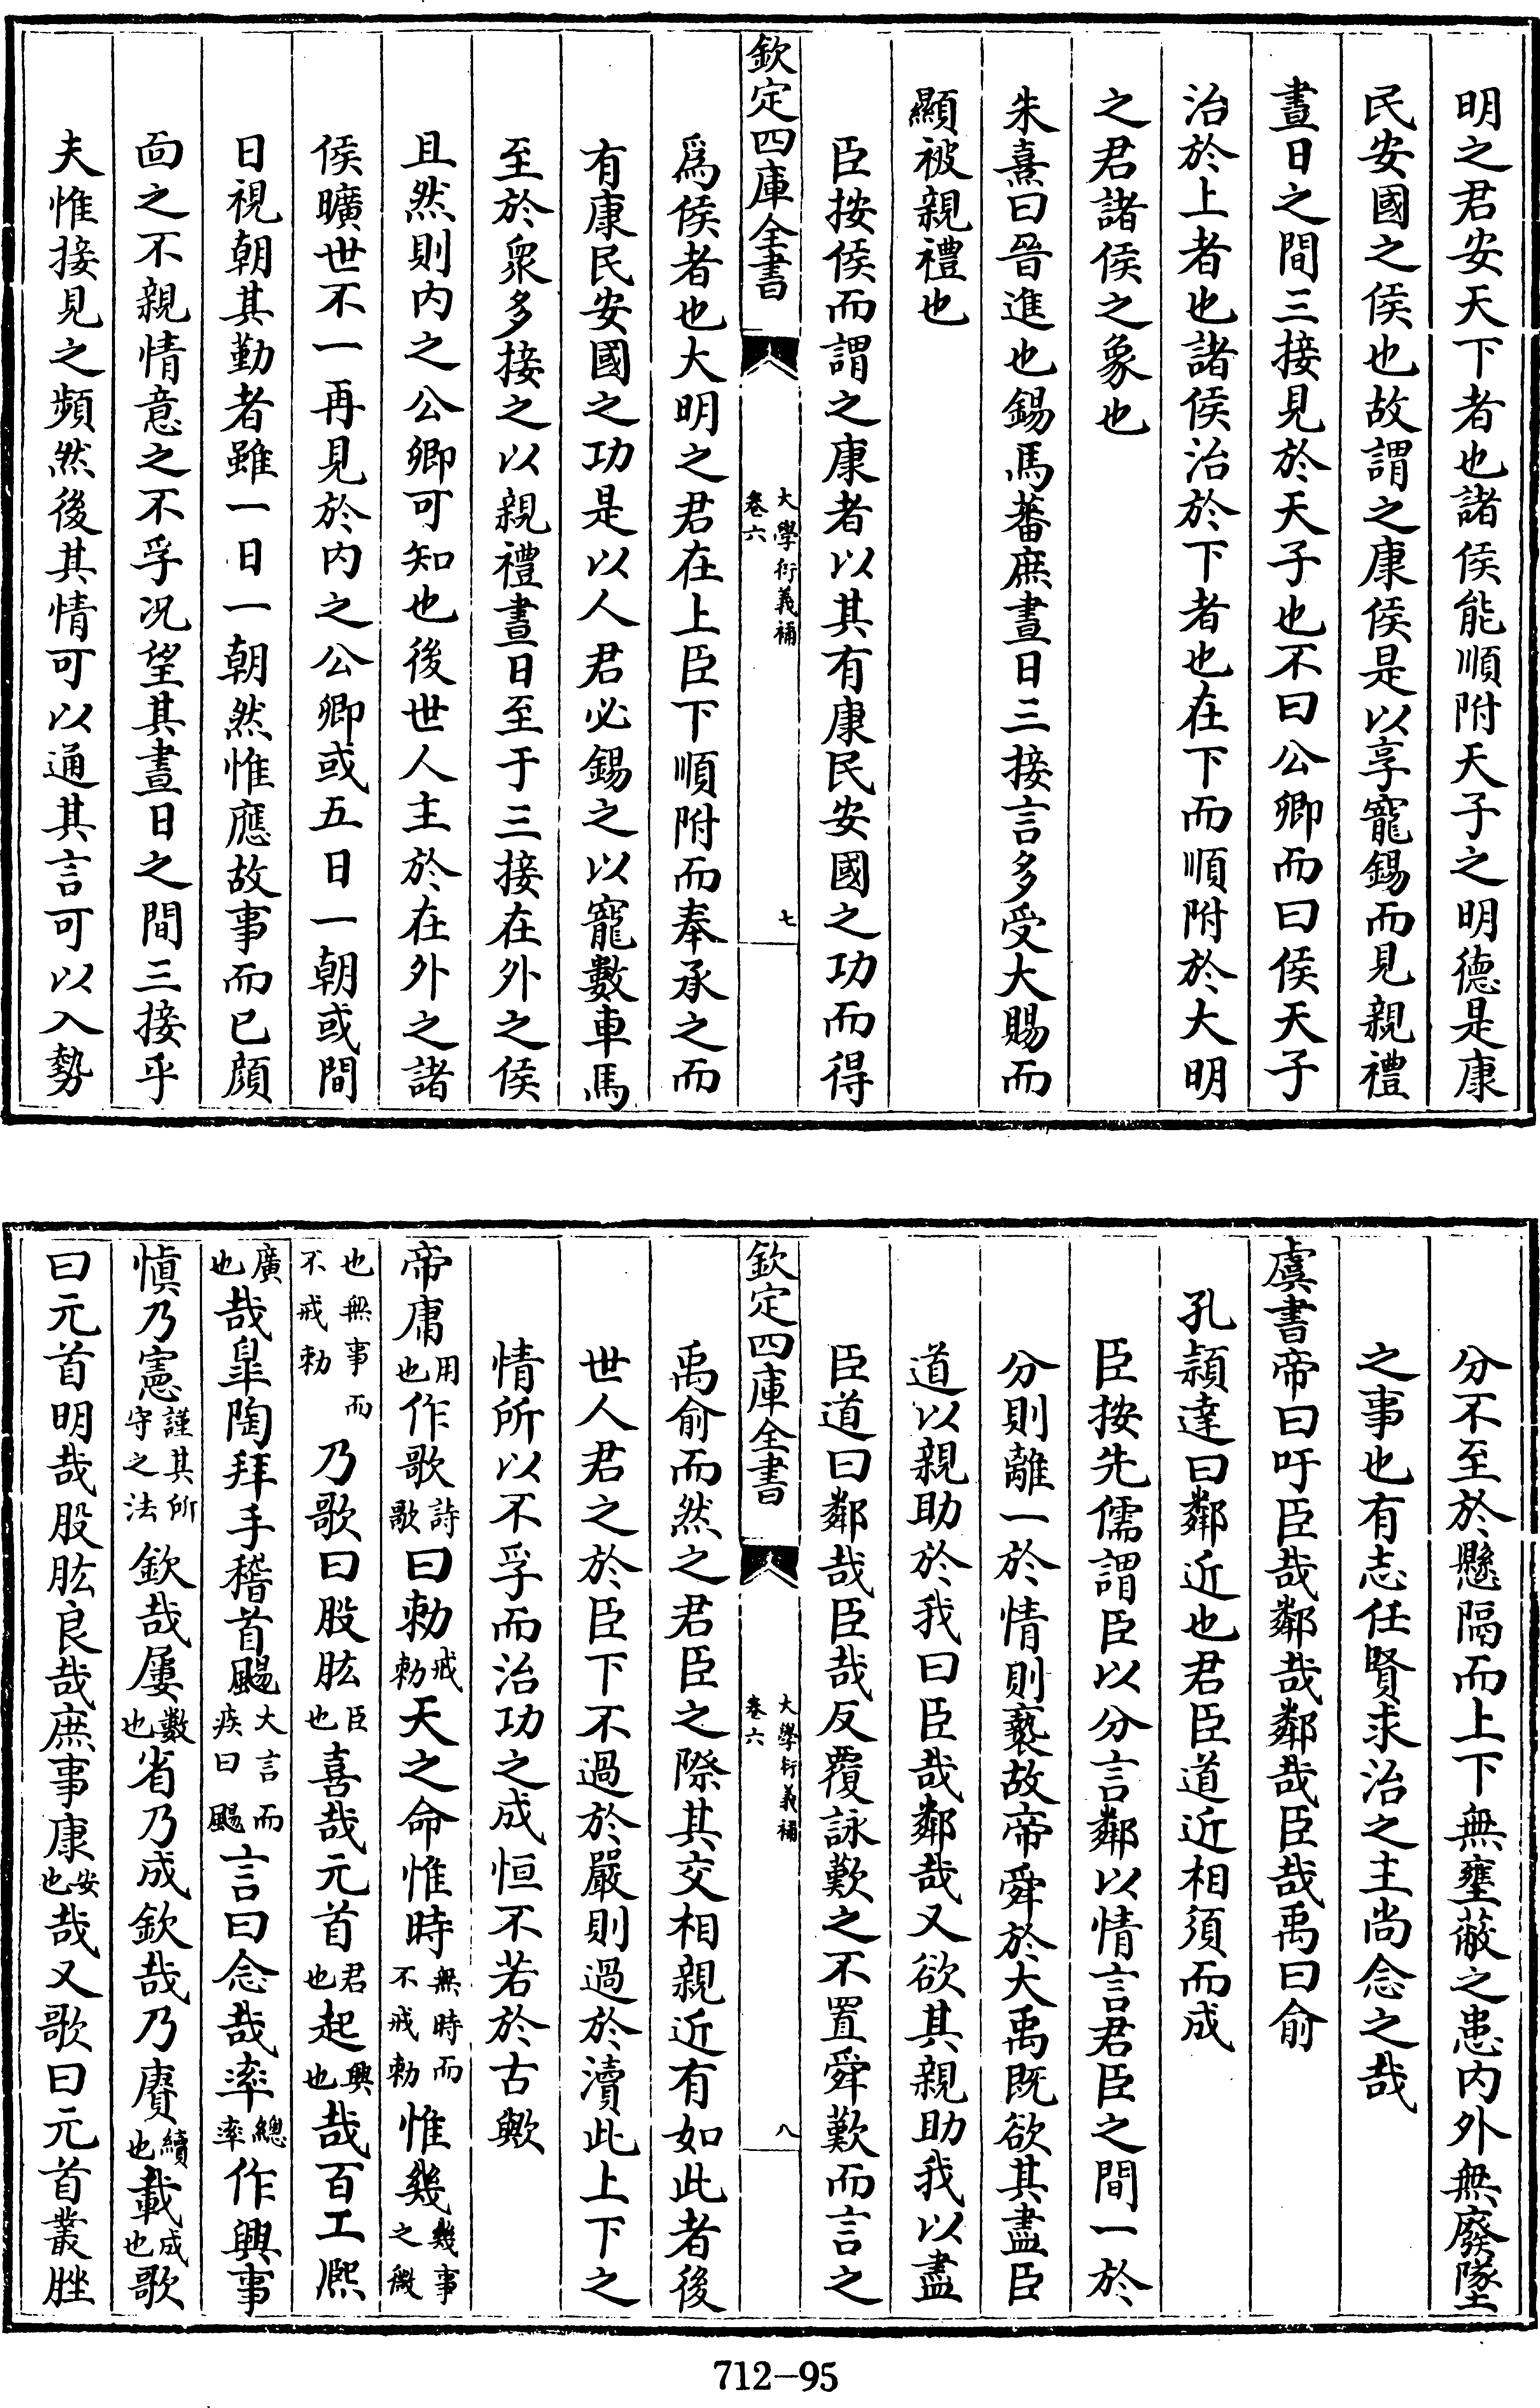 明之君安天下者也諸侯能順附天子之明德是康
民安國之侯也故謂之康侯是以享寵錫而見親禮
晝日之間三接見於天子也不曰公卿而曰侯天子
治於上者也諸侯治於下者也在下而順附於大明
之君諸侯之象也
朱熹曰晉進也錫馬蕃庶晝日三接言多受大賜而
顯被親禮也
臣按侯而謂之康者以其有康民安國之功而得
欽定四庫全書
大學衍義補
卷六
七
爲侯者也大明之君在上臣下順附而奉承之而
有康民安國之功是以人君必錫之以寵數車馬
至於衆多接之以親禮晝日至于三接在外之侯
且然則内之公卿可知也後世人主於在外之諸
侯曠世不一再見於内之公卿或五日一朝或間
日視朝其勤者雖一日一朝然惟應故事而已顔
面之不親情意之不孚况望其晝日之間三接乎
夫惟接見之頻然後其情可以通其言可以入勢
分不至於懸隔而上下無壅蔽之患内外無廢墜
之事也有志任賢求治之主尚念之哉
虞書帝曰吁臣哉鄰哉鄰哉臣哉禹曰俞
孔頴達曰鄰近也君臣道近相須而成
臣按先儒謂臣以分言鄰以情言君臣之間一於
分則離一於情則褻故帝舜於大禹既欲其盡臣
道以親助於我曰臣哉鄰哉又欲其親助我以盡
臣道曰鄰哉臣哉反覆詠歎之不置舜歎而言之
欽定四庫全書
大學衍義補
卷六
八
禹俞而然之君臣之際其交相親近有如此者後
世人君之於臣下不過於嚴則過於瀆此上下之
情所以不孚而治功之成恒不若於古歟
帝庸用也作歌詩歌曰勅戒勅天之命惟時無時而不戒勅惟幾幾事之微
也無事而不戒勅乃歌曰股肱臣也喜哉元首君也起興也哉百工熈
廣也哉臯陶拜手稽首颺大言而疾曰颺言曰念哉率總率作興事
愼乃憲謹其所守之法欽哉屢數也省乃成欽哉乃賡續也載成也歌
曰元首明哉股肱良哉庶事康安也哉又歌曰元首叢脞
712-95